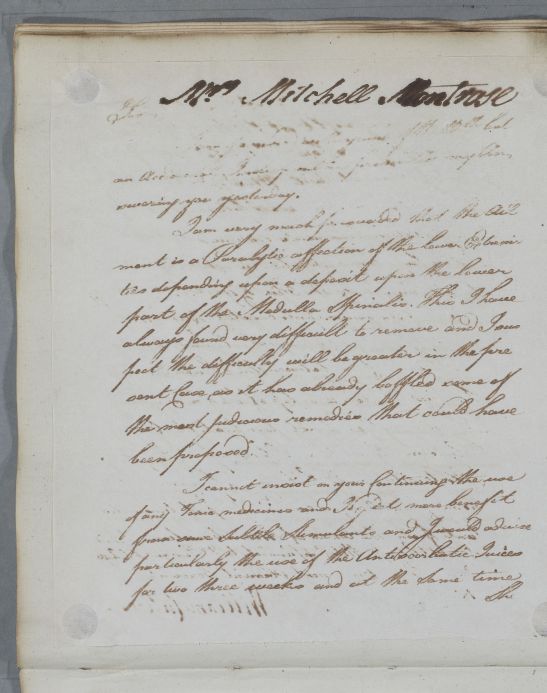 Mrs Mitchell Montrose
Sir
your
an
swering you yesterday.
I am very much persuaded that the Ail
ment is a Paralytic affection of the lower Extremi
ties depending upon a deposit upon the lower
part of the Medulla Spinalis. This I have
always found very difficult to remove and I sus
pect the difficulty will be greater in the pre
sent Case, as it has already baffled some of
the most Judicious remedies that could have
been proposed
I cannot insist on your Continuing the use
of any Tonic medicines and more benefit
from Subtile Stimulants and I would advise
particularly the use of the Antiscorbutic Juices
for two three weeks and at the same time
She